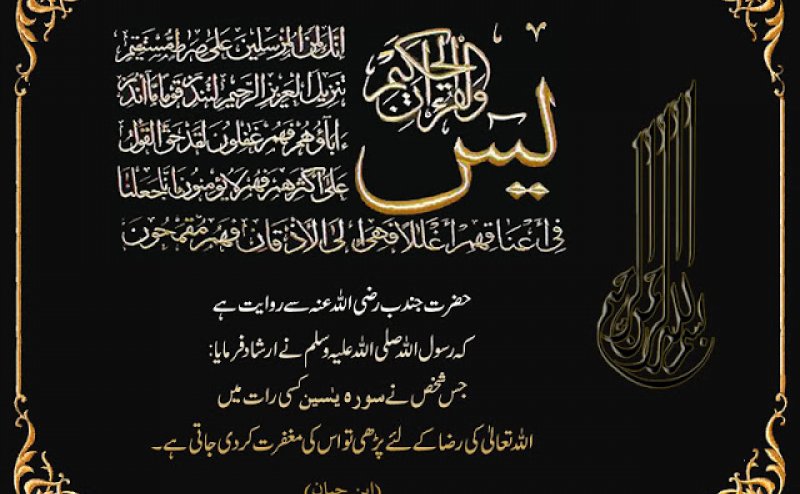 يس
والقرءان الحكيم
إنك لمن المرسلين على صرط مستقيم
تنزيل العزيز الرحيم لتنذر قوما ما أنذر
ءاباؤهم فهم غفلون لقد حق القول
على أكثرهم فهم لا يؤمنون إنا جعلنا
في أعناقهم أغللا فهى إلى الأذقان فهم مقمحون
بسم الله الرحمن الرحيم
حضرت جندب رضی اللہ عنہ سے روایت ہے
کہ رسول اللہ صلی اللہ علیہ وسلم نے ارشاد فرمایا:
جس شخص نے سورہ یٰسین کسی رات میں
اللہ تعالیٰ کی رضا کے لئے پڑھی تو اس کی مغفرت کر دی جاتی ہے۔
(ابن حبان)